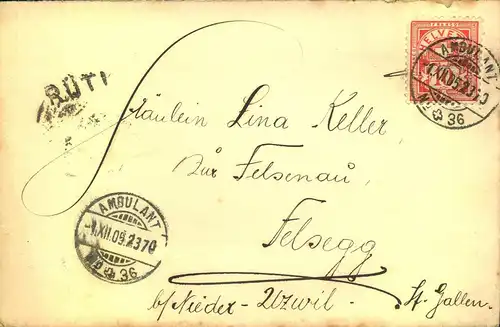 FRANCO
HELVETIA
AMBULANT
1.XII.05.2370
No 36
RÜTI
Fräulein Lina Keller,
Zur Felsenau,
Felsegg
b/Nieder-Uzwil.
St. Gallen.
AMBULANT
1.XII.09.2370
No 36